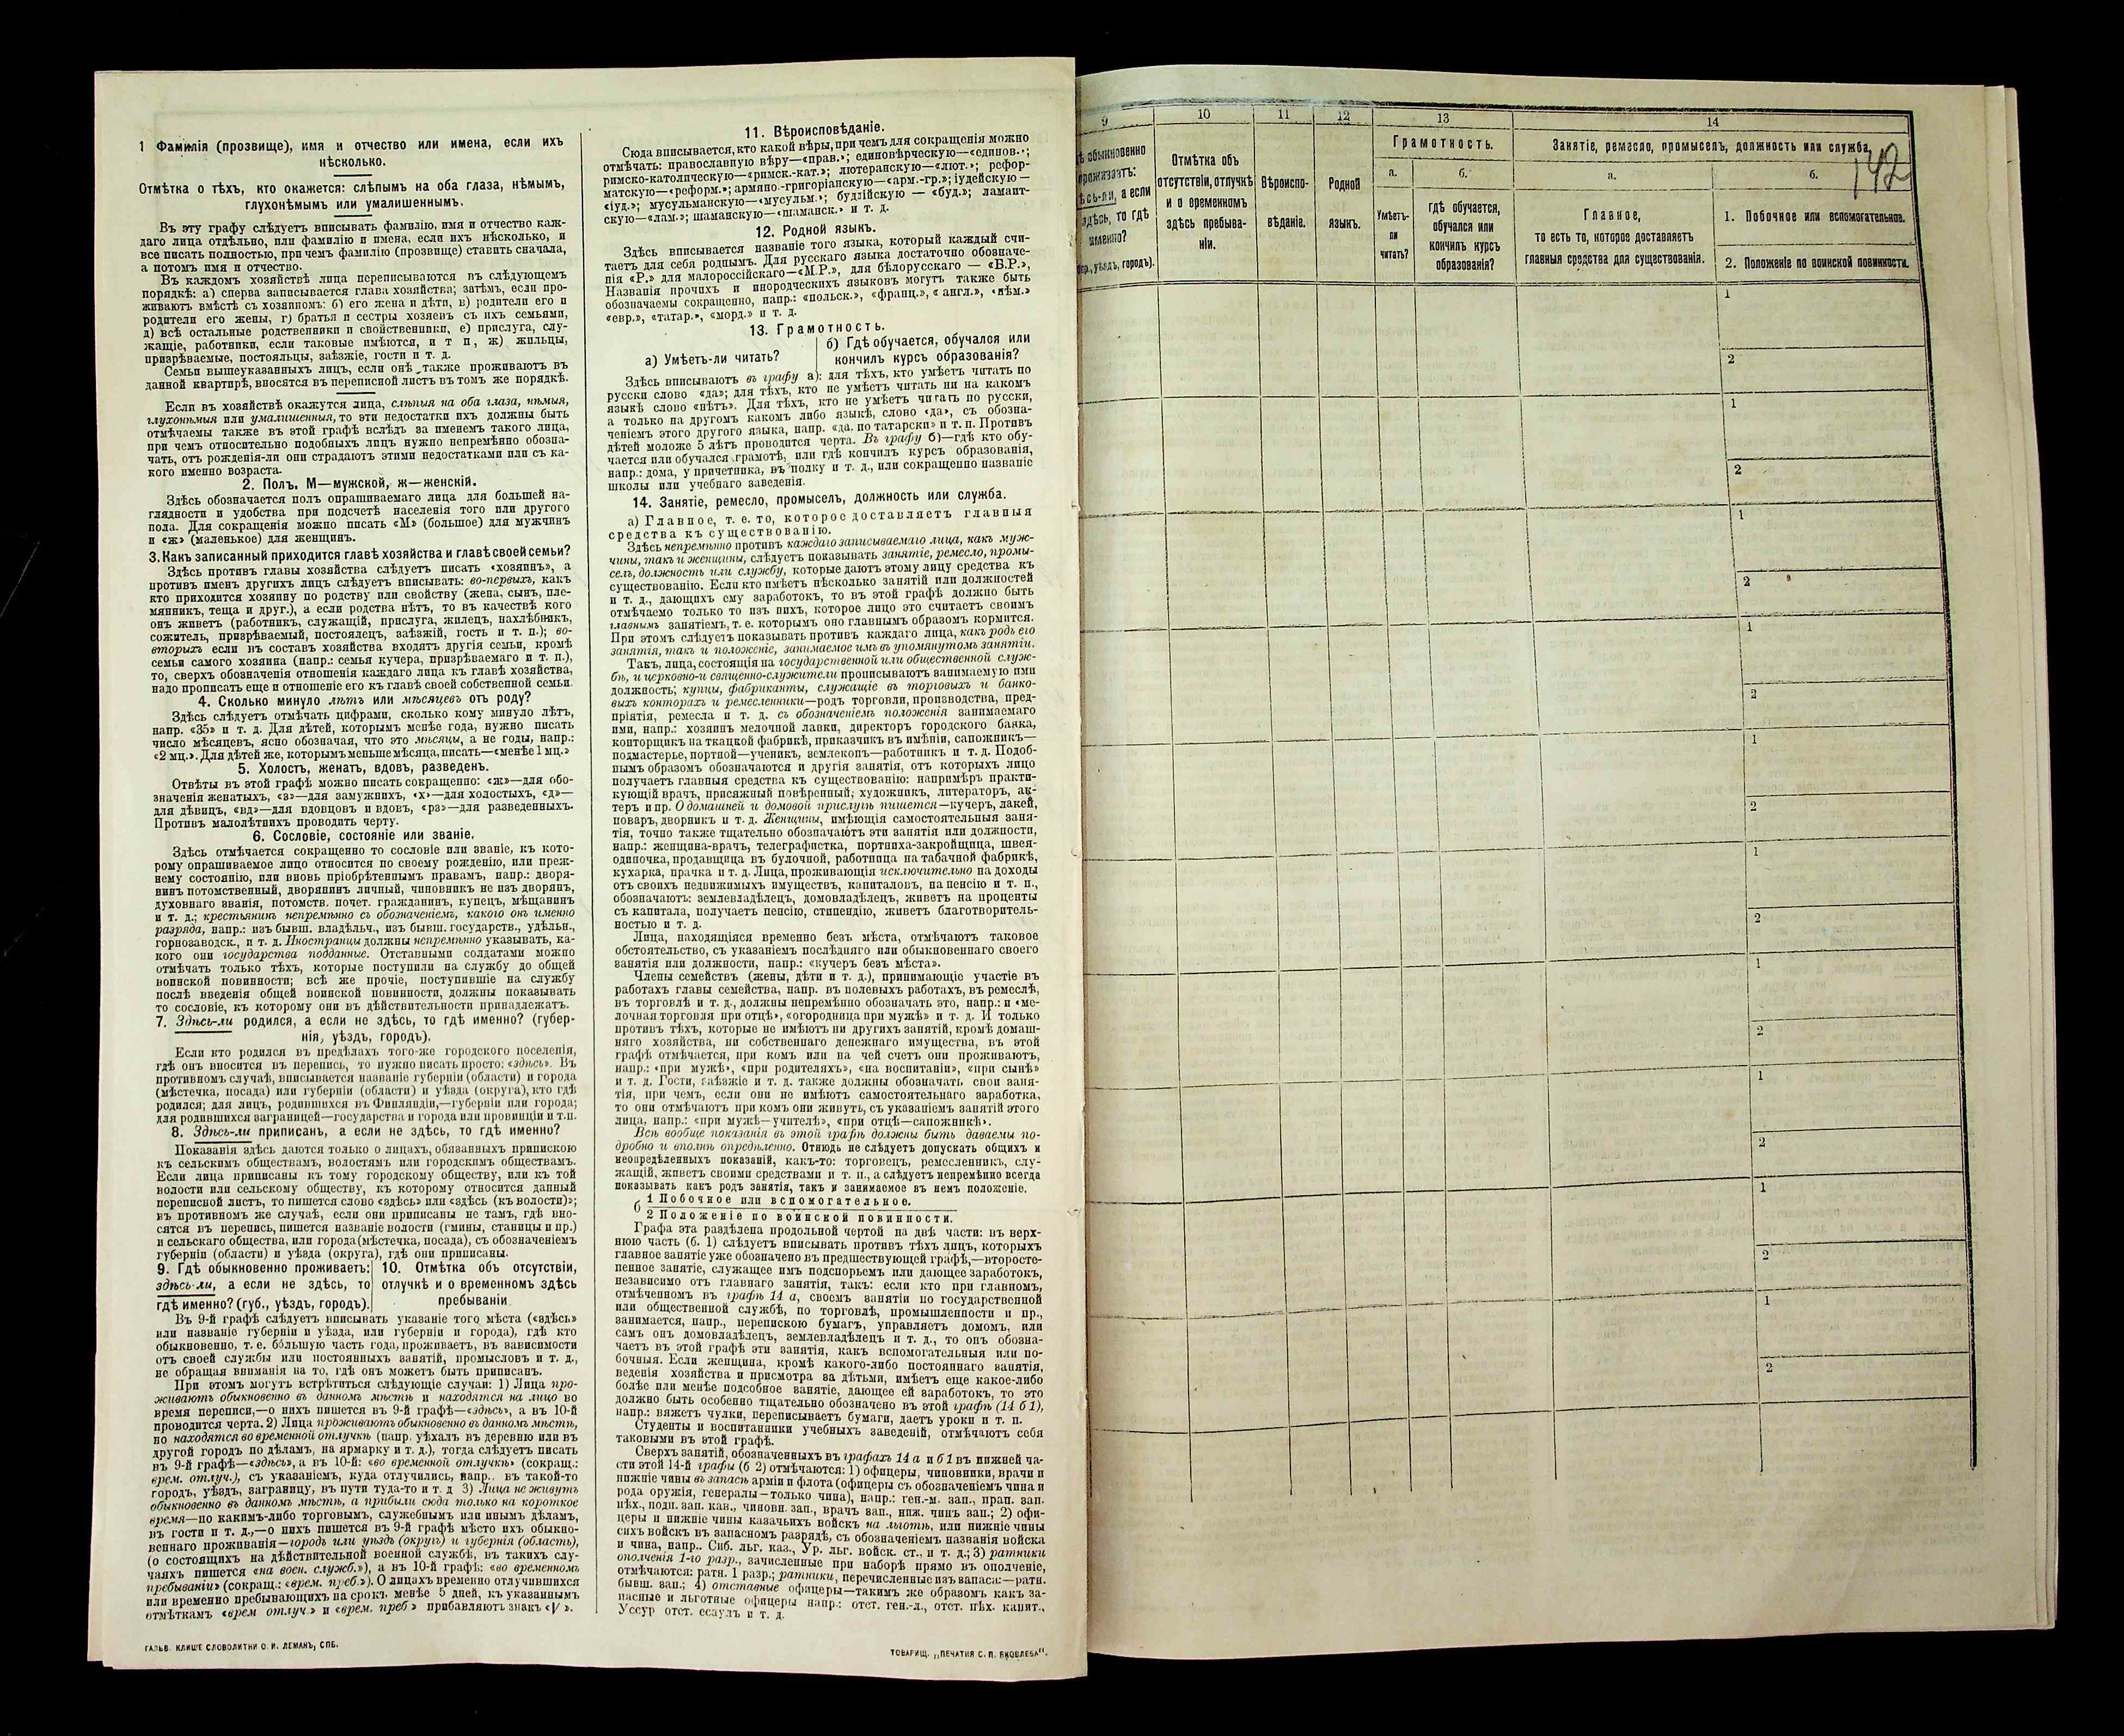 1 Фамилія (прозвище), имя и отчество или имена, если ихъ
нѣсколько.
Отмѣтка о тѣхъ, кто окажется: слѣпымъ на оба глаза, нѣмымъ,
глухонѣмымъ или умалишеннымъ.
Въ эту графу слѣдуетъ вписывать фамилію, имя и отчество каж-
даго лица отдѣльно, или фамилію и имена, если ихъ нѣсколько, и
все писать полностью, при чемъ фамилію (прозвище) ставить сначала,
а потомъ имя и отчество.
Въ каждомъ хозяйствѣ лица переписываются въ слѣдующемъ
порядкѣ: а) сперва записывается глава хозяйства; затѣмъ, если про-
живаютъ вмѣстѣ съ хозяиномъ: б) его жена и дѣти, в) родители его и
родители его жены, г) братья и сестры хозяевъ съ ихъ семьями,
д) всѣ остальные родственники и свойственники, е) прислуга, слу-
жащіе, работники, если таковые имѣются, и т п, ж) жильцы,
призрѣваемые, постояльцы, заѣзжіе, гости и т. д.
Семьи вышеуказанныхъ лицъ, если онѣ также проживаютъ въ
данной квартирѣ, вносятся въ переписной листъ въ томъ же порядкѣ.
Если въ хозяйствѣ окажутся лица, слѣпыя на оба глаза, нѣмыя,
глухонѣмыя или умалишенныя, то эти недостатки ихъ должны быть
отмѣчаемы также въ этой графѣ вслѣдъ за именемъ такого лица,
при чемъ относительно подобныхъ лицъ нужно непремѣнно обозна-
чать, отъ рожденія-ли они страдаютъ этими недостатками или съ ка-
кого именно возраста.
2. Полъ. М—мужской, ж—женскій.
Здѣсь обозначается полъ опрашиваемаго лица для большей на-
глядности и удобства при подсчетѣ населенія того или другого
пола. Для сокращенія можно писать «М» (большое) для мужчинъ
и «ж» (маленькое) для женщинъ.
3. Какъ записанный приходится главѣ хозяйства и главѣ своей семьи?
Здѣсь противъ главы хозяйства слѣдуетъ писать «хозяинъ», а
противъ именъ другихъ лицъ слѣдуетъ вписывать: во-первыхъ, какъ
кто приходится хозяину по родству или свойству (жена, сынъ, пле-
мянникъ, теща и друг.), а если родства нѣтъ, то въ качествѣ кого
онъ живетъ (работникъ, служащій, прислуга, жилецъ, нахлѣбникъ,
сожитель, призрѣваемый, постоялецъ, заѣзжій, гость и т. п.); во-
вторыхъ если въ составъ хозяйства входятъ другія семьи, кромѣ
семьи самого хозяина (напр.: семья кучера, призрѣваемаго и т. п.),
то, сверхъ обозначенія отношенія каждаго лица къ главѣ хозяйства,
надо прописать еще и отношеніе его къ главѣ своей собственной семьи.
4. Сколько минуло лѣтъ или мѣсяцевъ отъ роду?
Здѣсь слѣдуетъ отмѣчать цифрами, сколько кому минуло лѣтъ,
напр. «35» и т. д. Для дѣтей, которымъ менѣе года, нужно писать
число мѣсяцевъ, ясно обозначая, что это мѣсяцы, а не годы, напр.:
«2 мц.». Для дѣтей же, которымъ меньше мѣсяца, писать—«менѣе 1 мц.»
5. Холостъ, женатъ, вдовъ, разведенъ.
Отвѣты въ этой графѣ можно писать сокращенно: «ж»—для обо-
значенія женатыхъ, «з»—для замужнихъ, «х»—для холостыхъ, «д»—
для дѣвицъ, «вд»—для вдовцовъ и вдовъ, «рз»—для разведенныхъ.
Противъ малолѣтнихъ проводить черту.
6. Сословіе, состояніе или званіе.
Здѣсь отмѣчается сокращенно то сословіе или званіе, къ кото-
рому опрашиваемое лицо относится по своему рожденію, или преж-
нему состоянію, или вновь пріобрѣтеннымъ правамъ, напр.: дворя-
нинъ потомственный, дворянинъ личный, чиновникъ не изъ дворянъ,
духовнаго званія, потомств. почет. гражданинъ, купецъ, мѣщанинъ
и т. д.; крестьянинъ непремѣнно съ обозначеніемъ, какого онъ именно
разряда, напр.: изъ бывш. владѣльч., изъ бывш. государств., удѣльн.,
горнозаводск., и т. д. Иностранцы должны непремѣнно указывать, ка-
кого они государства подданные. Отставными солдатами можно
отмѣчать только тѣхъ, которые поступили на службу до общей
воинской повинности; всѣ же прочіе, поступившіе на службу
послѣ введенія общей воинской повинности, должны показывать
то сословіе, къ которому они въ дѣйствительности принадлежатъ.
7. Здѣсь-ли родился, а если не здѣсь, то гдѣ именно? (губер-
нія, уѣздъ, городъ).
Если кто родился въ предѣлахъ того-же городского поселенія,
гдѣ онъ вносится въ перепись, то нужно писать просто: «здѣсь». Въ
противномъ случаѣ, вписывается названіе губерніи (области) и города
(мѣстечка, посада) или губерніи (области) и уѣзда (округа), кто гдѣ
родился; для лицъ, родившихся въ Финляндіи,—губерніи или города;
для родившихся заграницей—государства и города или провинціи и т.п.
8. Здѣсь-ли приписанъ, а если не здѣсь, то гдѣ именно?
Показанія здѣсь даются только о лицахъ, обязанныхъ припискою
къ сельскимъ обществамъ, волостямъ или городскимъ обществамъ.
Если лица приписаны къ тому городскому обществу, или къ той
волости или сельскому обществу, къ которому относится данный
переписной листъ, то пишется слово «здѣсь» или «здѣсь (къ волости)»;
въ противномъ же случаѣ, если они приписаны не тамъ, гдѣ вно-
сятся въ перепись, пишется названіе волости (гмины, станицы и пр.)
и сельскаго общества, или города (мѣстечка, посада), съ обозначеніемъ
губерніи (области) и уѣзда (округа), гдѣ они приписаны.
9. Гдѣ обыкновенно проживаетъ:
здѣсь-ли, а если не здѣсь, то
гдѣ именно? (губ., уѣздъ, городъ).
10. Отмѣтка объ отсутствіи,
отлучкѣ и о временномъ здѣсь
пребываніи
Въ 9-й графѣ слѣдуетъ вписывать указаніе того мѣста («здѣсь»
или названіе губерніи и уѣзда, или губерніи и города), гдѣ кто
обыкновенно, т. е. бо́льшую часть года, проживаетъ, въ зависимости
отъ своей службы или постоянныхъ занятій, промысловъ и т. д.,
не обращая вниманія на то, гдѣ онъ можетъ быть приписанъ.
При этомъ могутъ встрѣтиться слѣдующіе случаи: 1) Лица про-
живаютъ обыкновенно въ данномъ мѣстѣ и находятся на лицо во
время переписи,—о нихъ пишется въ 9-й графѣ—«здѣсь», а въ 10-й
проводится черта. 2) Лица проживаютъ обыкновенно въ данномъ мѣстѣ,
но находятся во временной отлучкѣ (напр. уѣхалъ въ деревню или въ
другой городъ по дѣламъ, на ярмарку и т. д.), тогда слѣдуетъ писать
въ 9-й графѣ—«здѣсь», а въ 10-й: «во временной отлучкѣ» (сокращ.:
врем. отлуч.), съ указаніемъ, куда отлучились, напр.. въ такой-то
городъ, уѣздъ, заграницу, въ пути туда-то и т. д 3) Лица не живутъ
обыкновенно въ данномъ мѣстѣ, а прибыли сюда только на короткое
время—по какимъ-либо торговымъ, служебнымъ или инымъ дѣламъ,
въ гости и т. д.,—о нихъ пишется въ 9-й графѣ мѣсто ихъ обыкно-
веннаго проживанія—городъ или уѣздъ (округъ) и губернія (область),
(о состоящихъ на дѣйствительной военной службѣ, въ такихъ слу-
чаяхъ пишется «на воен. служб.»), а въ 10-й графѣ: «во временномъ
пребываніи» (сокращ.: «врем. преб.»). О лицахъ временно отлучившихся
или временно пребывающихъ на срокъ менѣе 5 дней, къ указаннымъ
отмѣткамъ «врем отлуч.» и «врем. преб» прибавляютъ знакъ «V».
ГАЛЬВ. КЛИШЕ СЛОВОЛИТНИ О. И. ЛЕМАНЪ, СПБ.
11. Вѣроисповѣданіе.
Сюда вписывается, кто какой вѣры, при чемъ для сокращенія можно
отмѣчать: православную вѣру—«прав.»; единовѣрческую—«единов.»;
римско-католическую—«римск.-кат.»; лютеранскую—«лют.»; рефор-
матскую—«реформ.»; армяно-григоріанскую—«арм.-гр.»; іудейскую—
«іуд.»; мусульманскую—«мусульм.»; буддійскую — «буд.»; ламаит-
скую—«лам.»; шаманскую—«шаманск.» и т. д.
12. Родной языкъ.
Здѣсь вписывается названіе того языка, который каждый счи-
таетъ для себя роднымъ. Для русскаго языка достаточно обозначе-
нія «Р.» для малороссійскаго—«М.Р.», для бѣлорусскаго — «Б.Р.»,
Названія прочихъ и инородческихъ языковъ могутъ также быть
обозначаемы сокращенно, напр.: «польск.», «франц.», « англ.», «нѣм.»
«евр.», «татар.», «морд.» и т. д.
13. Грамотность.
а) Умѣетъ-ли читать?
б) Гдѣ обучается, обучался или
кончилъ курсъ образованія?
Здѣсь вписываютъ въ графу а): для тѣхъ, кто умѣетъ читать по
русски слово «да»; для тѣхъ, кто не умѣетъ читать ни на какомъ
языкѣ слово «нѣтъ». Для тѣхъ, кто не умѣетъ читать по русски,
а только на другомъ какомъ либо языкѣ, слово «да», съ обозна-
ченіемъ этого другого языка, напр. «да, по татарски» и т. п. Противъ
дѣтей моложе 5 лѣтъ проводится черта. Въ графу б)—гдѣ кто обу-
чается или обучался грамотѣ, или гдѣ кончилъ курсъ образованія,
напр.: дома, у причетника, въ полку и т. д., или сокращенно названіе
школы или учебнаго заведенія.
14. Занятіе, ремесло, промыселъ, должность или служба.
а) Главное, т. е. то, которое доставляетъ главныя
средства къ существованію.
Здѣсь непремѣнно противъ каждаго записываемаго лица, какъ муж-
чины, такъ и женщины, слѣдуетъ показывать занятіе, ремесло, промы-
селъ, должность или службу, которые даютъ этому лицу средства къ
существованію. Если кто имѣетъ нѣсколько занятій или должностей
и т. д., дающихъ ему заработокъ, то въ этой графѣ должно быть
отмѣчаемо только то изъ нихъ, которое лицо это считаетъ своимъ
главнымъ занятіемъ, т. е. которымъ оно главнымъ образомъ кормится.
При этомъ слѣдуетъ показывать противъ каждаго лица, какъ родъ его
занятія, такъ и положеніе, занимаемое имъ въ упомянутомъ занятіи.
Такъ, лица, состоящія на государственной или общественной служ-
бѣ, и церковно-и священно-служители прописываютъ занимаемую ими
должность; купцы, фабриканты, служащіе въ торговыхъ и банко-
выхъ конторахъ и ремесленники—родъ торговли, производства, пред-
пріятія, ремесла и т. д. съ обозначеніемъ положенія занимаемаго
ими, напр.: хозяинъ мелочной лавки, директоръ городского банка,
конторщикъ на ткацкой фабрикѣ, приказчикъ въ имѣніи, сапожникъ—
подмастерье, портной—ученикъ, землекопъ—работникъ и т. д. Подоб-
нымъ образомъ обозначаются и другія занятія, отъ которыхъ лицо
получаетъ главныя средства къ существованію: напримѣръ практи-
кующій врачъ, присяжный повѣренный, художникъ, литераторъ, ак-
теръ и пр. О домашней и домовой прислугѣ пишется—кучеръ, лакей,
поваръ, дворникъ и т. д. Женщины, имѣющія самостоятельныя заня-
тія, точно также тщательно обозначаютъ эти занятія или должности,
напр.: женщина-врачъ, телеграфистка, портниха-закройщица, швея-
одиночка, продавщица въ булочной, работница на табачной фабрикѣ,
кухарка, прачка и т. д. Лица, проживающія исключительно на доходы
отъ своихъ недвижимыхъ имуществъ, капиталовъ, на пенсію и т. п.,
обозначаютъ: землевладѣлецъ, домовладѣлецъ, живетъ на проценты
съ капитала, получаетъ пенсію, стипендію, живетъ благотворитель-
ностью и т. д.
Лица, находящіяся временно безъ мѣста, отмѣчаютъ таковое
обстоятельство, съ указаніемъ послѣдняго или обыкновеннаго своего
занятія или должности, напр.: «кучеръ безъ мѣста».
Члены семействъ (жены, дѣти и т. д.), принимающіе участіе въ
работахъ главы семейства, напр. въ полевыхъ работахъ, въ ремеслѣ,
въ торговлѣ и т. д., должны непремѣнно обозначать это, напр.: и «ме-
лочная торговля при отцѣ», «огородница при мужѣ» и т. д. И только
противъ тѣхъ, которые не имѣютъ ни другихъ занятій, кромѣ домаш-
няго хозяйства, ни собственнаго денежнаго имущества, въ этой
графѣ отмѣчается, при комъ или на чей счетъ они проживаютъ,
напр.: «при мужѣ», «при родителяхъ», «на воспитаніи», «при сынѣ»
и т. д. Гости, заѣзжіе и т. д. также должны обозначать свои заня-
тія, при чемъ, если они не имѣютъ самостоятельнаго заработка,
то они отмѣчаютъ при комъ они живутъ, съ указаніемъ занятій этого
лица, напр.: «при мужѣ—учителѣ», «при отцѣ—сапожникѣ».
Всѣ вообще показанія въ этой графѣ должны быть даваемы по-
дробно и вполнѣ опредѣленно. Отнюдь не слѣдуетъ допускать общихъ и
неопредѣленныхъ показаній, какъ-то: торговецъ, ремесленникъ, слу-
жащій, живетъ своими средствами и т. п., а слѣдуетъ непремѣнно всегда
показывать какъ родъ занятія, такъ и занимаемое въ немъ положеніе.
б 1 Побочное или вспомогательное.
2 Положеніе по воинской повинности.
Графа эта раздѣлена продольной чертой на двѣ части: въ верх-
нюю часть (б. 1) слѣдуетъ вписывать противъ тѣхъ лицъ, которыхъ
главное занятіе уже обозначено въ предшествующей графѣ,—второсте-
пенное занятіе, служащее имъ подспорьемъ или дающее заработокъ,
независимо отъ главнаго занятія, такъ: если кто при главномъ,
отмѣченномъ въ графѣ 14 а, своемъ занятіи по государственной
или общественной службѣ, по торговлѣ, промышленности и пр.,
занимается, напр., перепискою бумагъ, управляетъ домомъ, или
самъ онъ домовладѣлецъ, землевладѣлецъ и т. д., то онъ обозна-
чаетъ въ этой графѣ эти занятія, какъ вспомогательныя или по-
бочныя. Если женщина, кромѣ какого-либо постояннаго занятія,
веденія хозяйства и присмотра за дѣтьми, имѣетъ еще какое-либо
болѣе или менѣе подсобное занятіе, дающее ей заработокъ, то это
должно быть особенно тщательно обозначено въ этой графѣ (14 б 1),
напр.: вяжетъ чулки, переписываетъ бумаги, даетъ уроки и т. п.
Студенты и воспитанники учебныхъ заведеній, отмѣчаютъ себя
таковыми въ этой графѣ.
Сверхъ занятій, обозначенныхъ въ графахъ 14 а и б 1 въ нижней ча-
сти этой 14-й графы (б 2) отмѣчаются: 1) офицеры, чиновники, врачи и
нижніе чины въ запасѣ арміи и флота (офицеры съ обозначеніемъ чина и
рода оружія, генералы—только чина), напр.: ген.-м. зап., прап. зап.
пѣх., подп. зап. кав., чиновн. зап., врачъ зап., ниж. чинъ зап.; 2) офи-
церы и нижніе чины казачьихъ войскъ на льготѣ, или нижніе чины
сихъ войскъ въ запасномъ разрядѣ, съ обозначеніемъ названія войска
и чина, напр.. Сиб. льг. каз., Ур. льг. войск. ст., и т. д.; 3) ратники
ополченія 1-го разр., зачисленные при наборѣ прямо въ ополченіе,
отмѣчаются: ратн. 1 разр.; ратники, перечисленные изъ запаса:—ратн.
бывш. зап.; 4) отставные офицеры—такимъ же образомъ какъ за-
пасные и льготные офицеры напр.: отст. ген.-л., отст. пѣх. капит.,
Уссур отст. есаулъ и т. д.
ТОВАРИЩ. „ПЕЧАТНЯ С. П. ЯКОВЛЕВА".
142
9 10 11 12 13 14
обыкновенно
проживаетъ:
а если
здѣсь, то гдѣ
именно?
уѣздъ, городъ).
Отмѣтка объ
отсутствіи, отлучкѣ
и о временномъ
здѣсь пребыва-
ніи.
Вѣроиспо-
вѣданіе.
Родной
языкъ.
Грамотность.
а. б.
Умѣетъ-
ли
читать?
гдѣ обучается,
обучался или
кончилъ курсъ
образованія?
Занятіе, ремесло, промыселъ, должность или служба
а. б.
Главное,
то есть то, которое доставляетъ
главныя средства для существованія.
1. Побочное или вспомогательное.
2. Положеніе по воинской повинности.
1
2
1
2
1
2
1
2
1
2
1
2
1
2
1
2
1
2
1
2